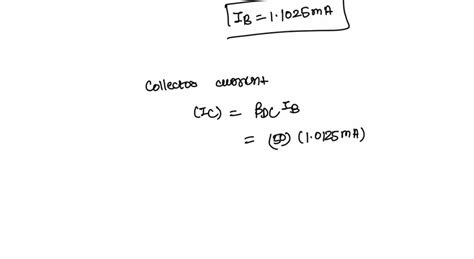 IB = 1.1025mA
Collector current
(IC) = βDC IB
= (50) (1.0125mA)